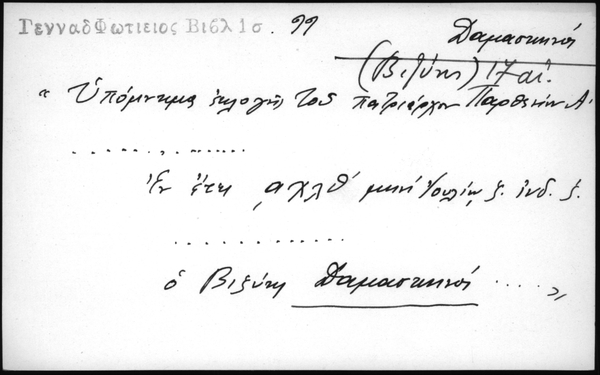 ΓενναδΦωτιειος Βιβλ 1σ. 99
Δαμασκηνός
(Βιζύης) 17 αἰ.
" Ὑπόμνημα ἐκλογῆς τοῦ πατριάρχου Παρθενίου Α'
..............
Ἐν ἔτει ͵αχλθ' μηνί Ἰουλίῳ ξ. ἰνδ. ξ.
..............
ὁ Βιζύης Δαμασκηνός ..... "